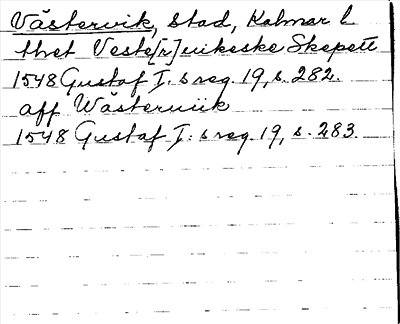 Västervik, stad, Kalmar l
thet Veste[r]uikeske Skepett
1548 Gustaf I:s reg. 19, s. 282.
aff Wästerwiik
1548 Gustaf I:s reg. 19, s. 283.